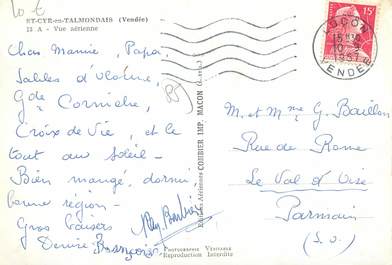 ST-CYR-en-TALMONDAIS (Vendée)
23 A - Vue aérienne
Chers Mamie, Papa,
Sables d'Olonne,
Gde Corniche,
Croix de Vie, et le
tout au soleil -
Bien mangé, dormi,
bonne région -
Gros baisers
Denise
LUÇON
10-9
1957
VENDEE
15F
Editions Aériennes COMBIER IMP. MACON (S.-et-L.)
M. et Mme G. Baillon
Rue de Rome
Le Val d'Oise
Parmain
(S. O.)
PHOTOGRAPHIE VÉRITABLE
Reproduction Interdite